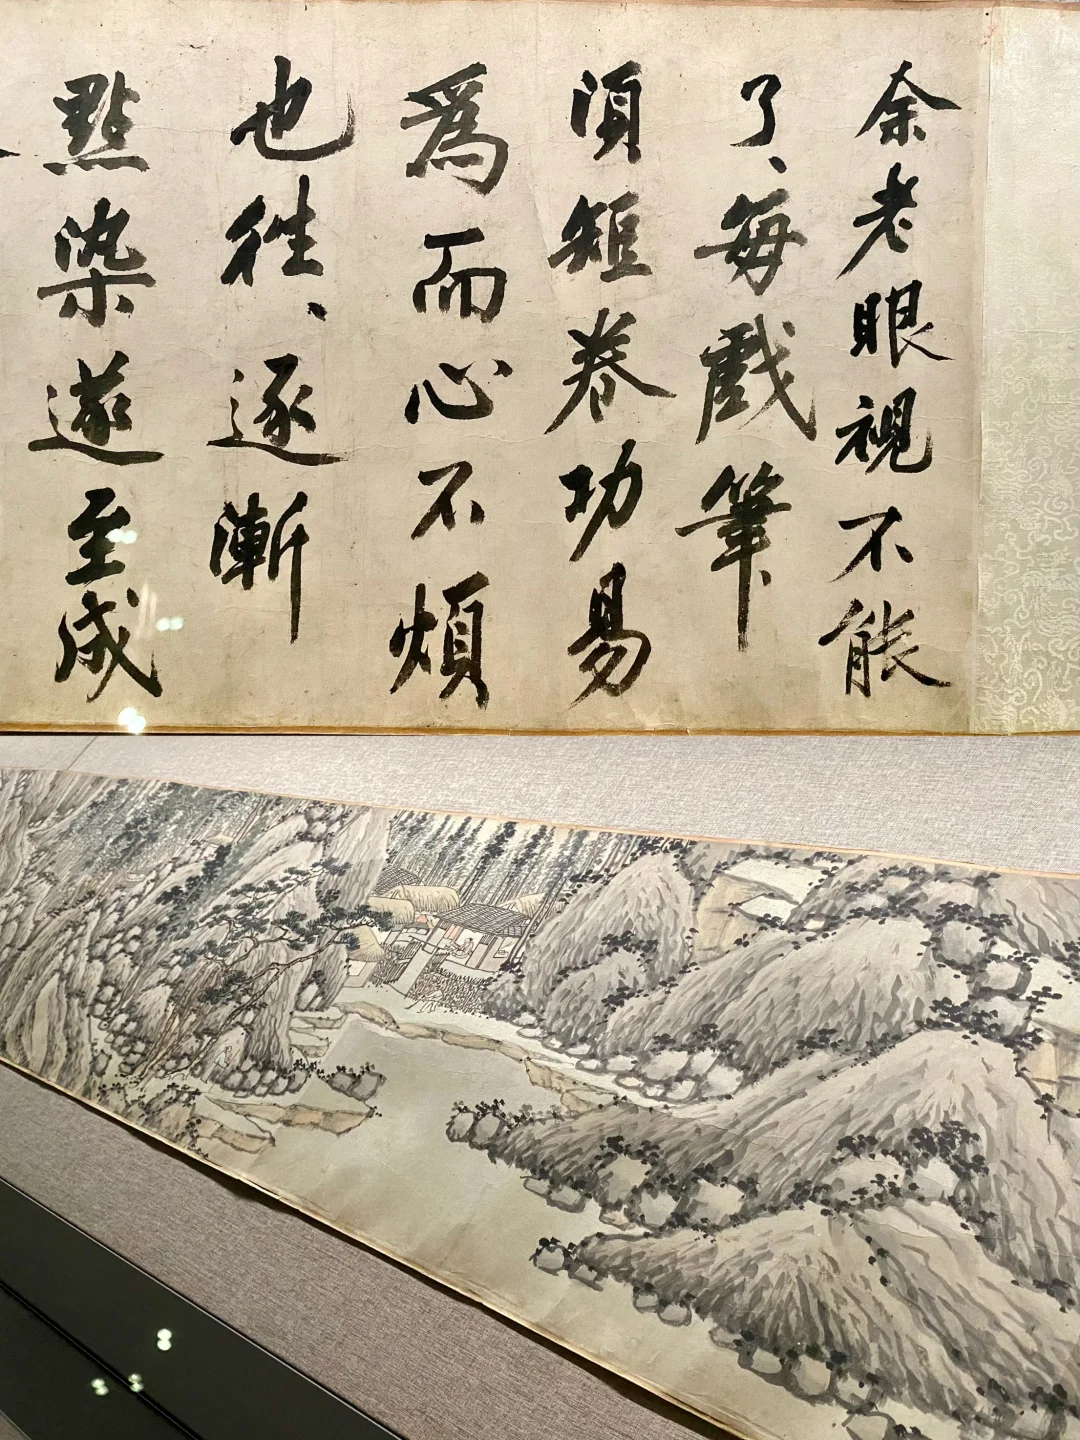 余老眼視不能
了、每戲筆
須短卷功易
爲而心不煩
也往、逐漸
點染遂至成